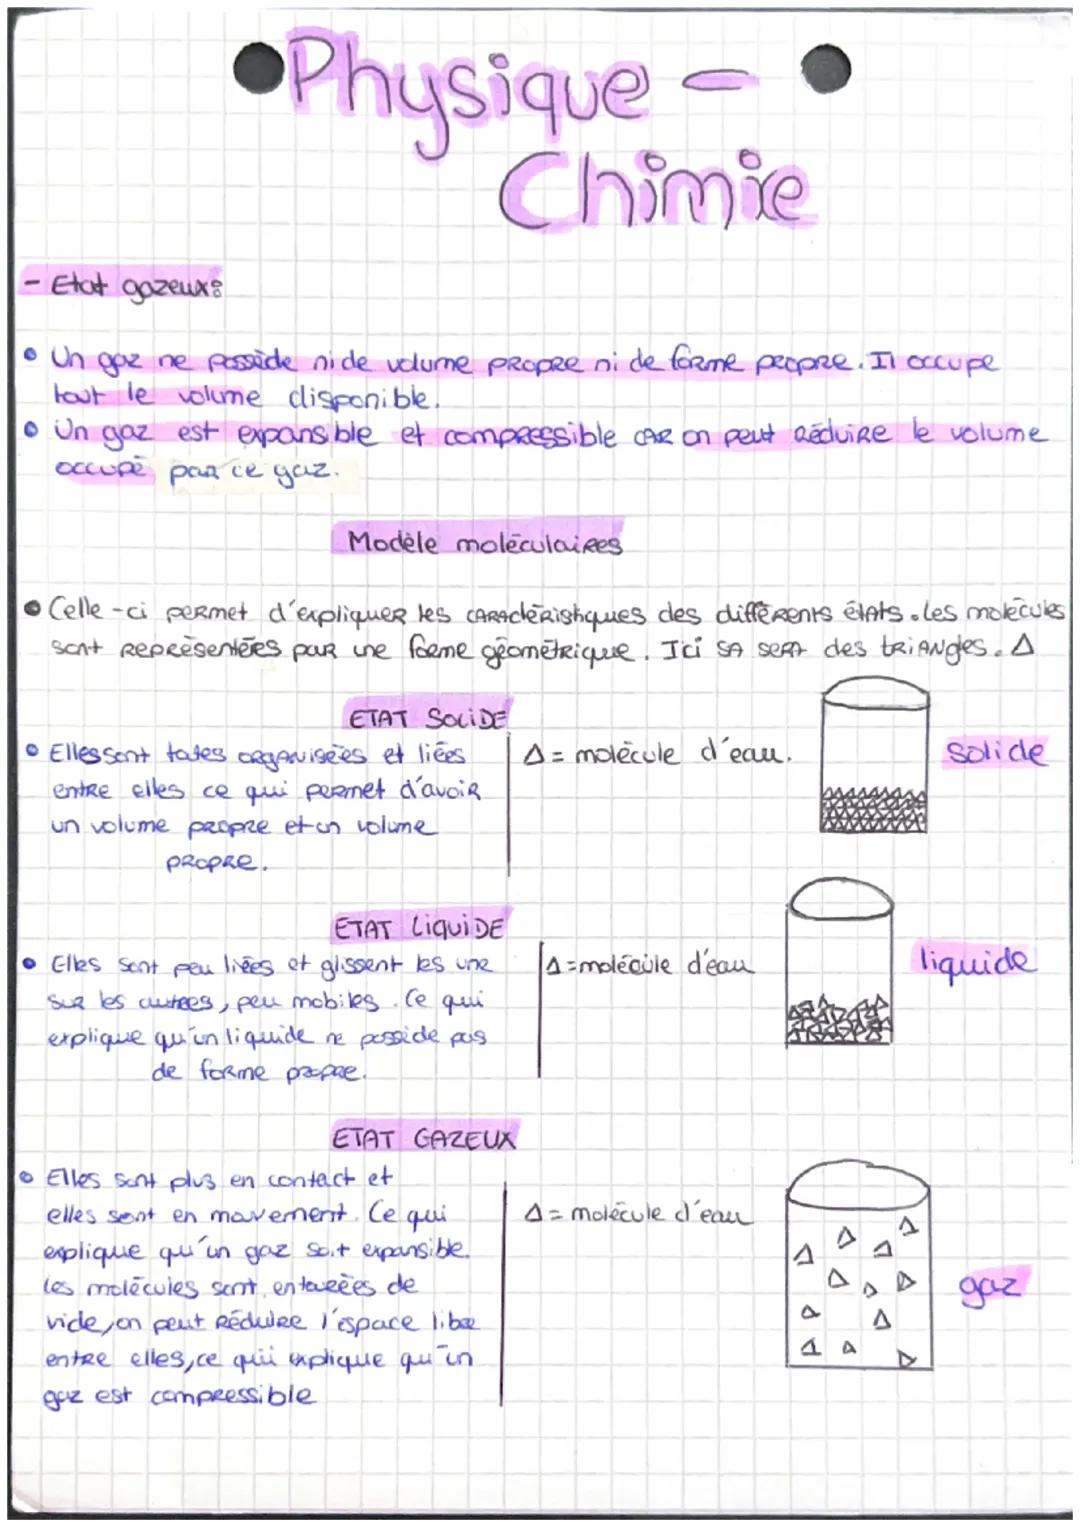 Physique -
Chimie
- Etat gazeux:
• Un gaz ne possède ni de volume propre ni de forme propre. Il occupe
tout le volume disponible.
• Un gaz est expansible et compressible car on peut réduire le volume
occupé par ce gaz.
Modèle moléculaires
• Celle-ci permet d'expliquer les caractéristiques des différents états. Les molécules
sont représentées par une forme géométrique. Ici sa sera des triangles. Δ
ETAT SOLIDE
• Elles sont toutes organisées et liées
entre elles ce qui permet d'avoir
un volume propre et un volume
propre.
Δ = molécule d'eau.
solide
ETAT LiquiDE
• Elles sont peu liées et glissent les une
sur les autres, peu mobiles. Ce qui
explique qu'un liquide ne possède pas
de forme propre.
Δ = molécule d'eau
liquide
ETAT GAZEUX
• Elles sont plus en contact et
elles sont en mouvement. Ce qui
explique qu'un gaz soit expansible.
Les molécules sont entourées de
vide, on peut réduire l'espace libre
entre elles, ce qui explique qu'un
gaz est compressible
Δ = molécule d'eau
gaz